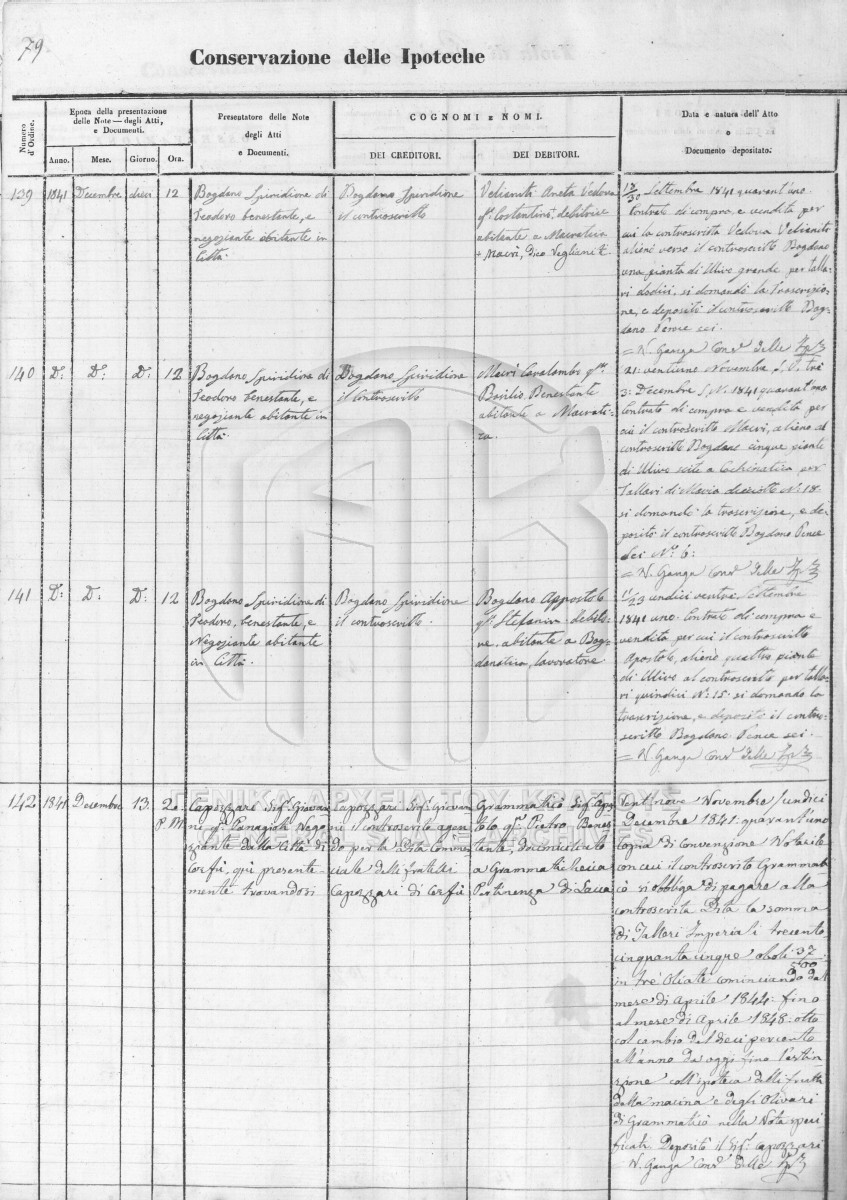 79
Conservazione delle Ipoteche
Numero d'Ordine.
Epoca della presentazione
delle Note — degli Atti,
e Documenti.
Anno.
Mese.
Giorno.
Ora.
Presentatore delle Note
degli Atti
e Documenti.
COGNOMI E NOMI.
DEI CREDITORI.
DEI DEBITORI.
Data e natura dell'Atto
o
Documento depositato.
139
1841
Decembre
dieci
12
Bogdano Spiridione di
Teodoro benestante, e
negoziante abitante in
Città.
Bogdano Spiridione
il controscritto
Velianiti Aneta Vedova
qm Costantino, debitrice
abitante a
Mavri, dico Veglianiti.
Settembre 1841 quarant'uno.
Contratto di compra, e vendita per
cui la controscritta Vedova Velianiti
alienò verso il controscritto Bogdano
una pianta di Ulivo grande per talla-
ri dodici, si domanda la trascrizio-
ne, e depositò il controscritto Bog-
dano Pence sei.
= N. Ganga Consr delle
140
D:
D:
D:
12
Bogdano Spiridione di
Teodoro benestante, e
negoziante abitante in
Città.
Bogdano Spiridione
il controscritto
Macrì Caralambo qm
Basilio Benestante
abitante a Macrati-
ca.
21: ventiuno Novembre S.V. tre
3: Decembre S.N. 1841 quarant'uno
Contratto di compra e vendita per
cui il controscritto Macrì, alienò al
controscritto Bogdano cinque piante
di Ulivo site a per
Tallari di diciotto No: 18.
si domanda la trascrizione, e de-
positò il controscritto Bogdano Pence
sei No. 6:
= N. Ganga Consr delle
141
D:
D.
D:
12
Bogdano Spiridione di
Teodoro, benestante, e
Negoziante abitante
in Città.
Bogdano Spiridione
il controscritto.
Bogdano Appostolo
qm Stefanin debito-
re, abitante a Bog-
danatica, lavoratore
11/23 undici ventitre Settembre
1841 uno. Contratto di compra e
vendita per cui il controscritto
Apostolo, alienò quattro piante
di Ulivo al controscritto per talla-
ri quindici No: 15. si domanda la
trascrizione, e depositò il contro-
scritto Bogdano Pence sei.
= N Ganga Consr delle
142
1841
Decembre
13.
2a
P.M.
Capozzari Sigr Giovan-
ni qm Panagioti Nego-
ziante della Città di
Corfù, qui presente-
mente trovandosi
Capozzari Sigr Giovan-
ni il controscritto agen-
do per la Dita Commer-
ciale delli fratelli
Capozzari di Corfù
Grammaticò Sigr Apo-
stolo qm Pietro Benes-
tante, domiciliato
a Grammaticheica
Pertinenza di Lacca
Vent'nove Novembre/undici
Decembre 1841: quarant'uno
copia di Convenzione Notarile
con cui il controscritto Grammati-
cò si obbliga di pagare alla
controscritta Dita la somma
di Tallari Imperiali trecento
cinquanta cinque oboli 37/500
in trè Oliate cominciando dal
mese di Aprile 1844: fino
al mese di Aprile 1848: otto
col cambio del dieci per cento
all'anno da oggi fino l'estin-
zione coll'ipoteca delli frutti
della macina e degli Olivari
di Grammaticò nella Nota speci-
ficati. Depositò il Sigr Capozzari
N. Ganga Consr delle
ΓΕΝΙΚΑ ΑΡΧΕΙΑ ΤΟΥ ΚΡΑΤΟΥΣ
GENERAL STATE ARCHIVES